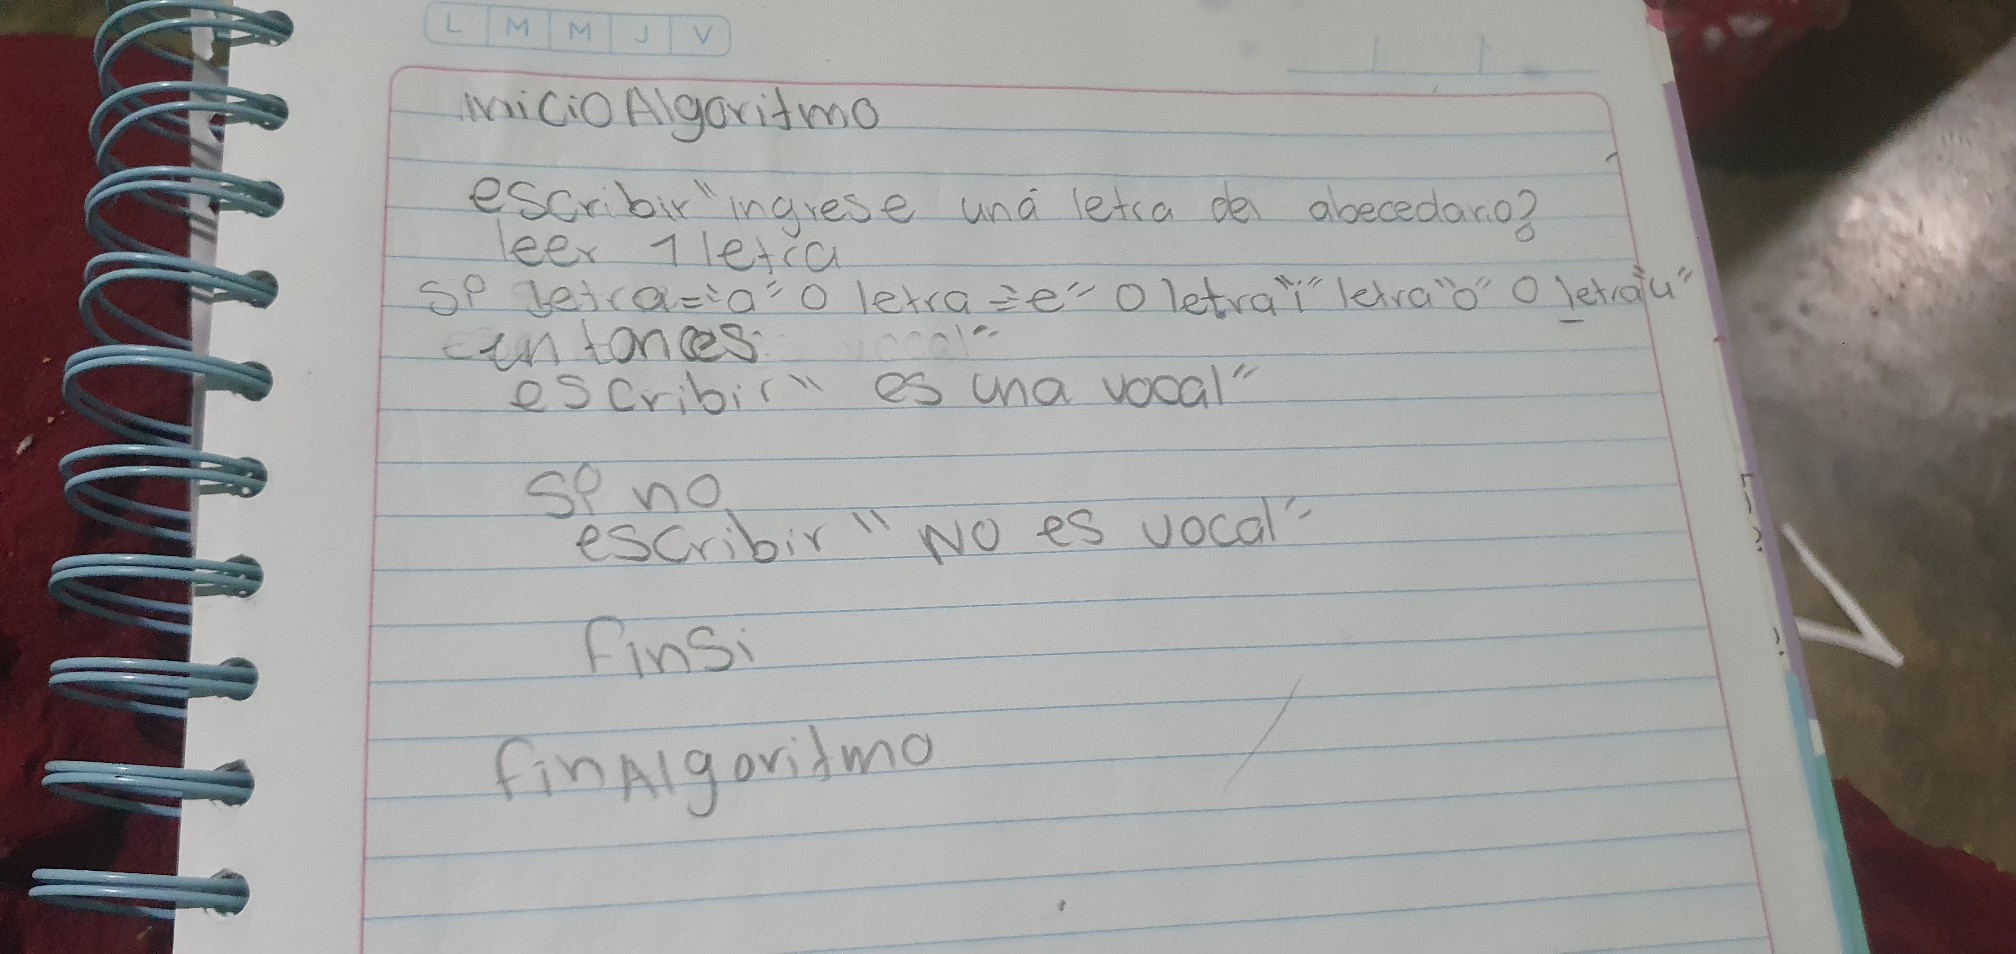 L M M J V
inicio Algoritmo
escribir "ingrese una letra del abecedario?
leer 1 letra
Si letra="a" o letra="e" o letra"i" letra"o" o letra"u"
entonces
vocal"
escribir " es una vocal"
Si no
escribir " NO es vocal"
finSi
finAlgoritmo